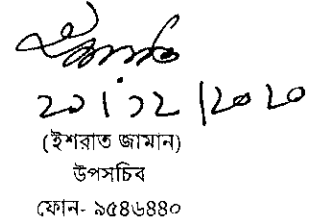 ২০।১২।২০২০
(ইশরাত জামান)
উপসচিব
ফোন- ৯৫৪৬৪৪০